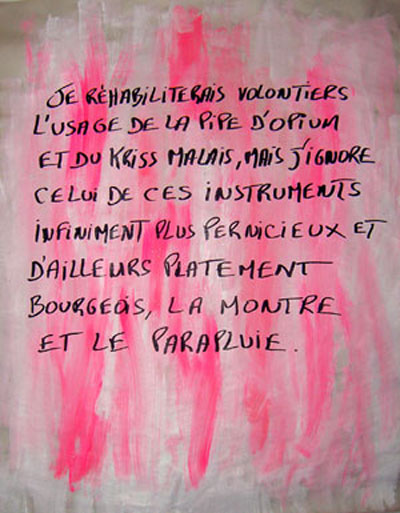 JE RÉHABILITERAIS VOLONTIERS
L'USAGE DE LA PIPE D'OPIUM
ET DU KRISS MALAIS, MAIS J'IGNORE
CELUI DE CES INSTRUMENTS
INFINIMENT PLUS PERNICIEUX ET
D'AILLEURS PLATEMENT
BOURGEOIS, LA MONTRE
ET LE PARAPLUIE.